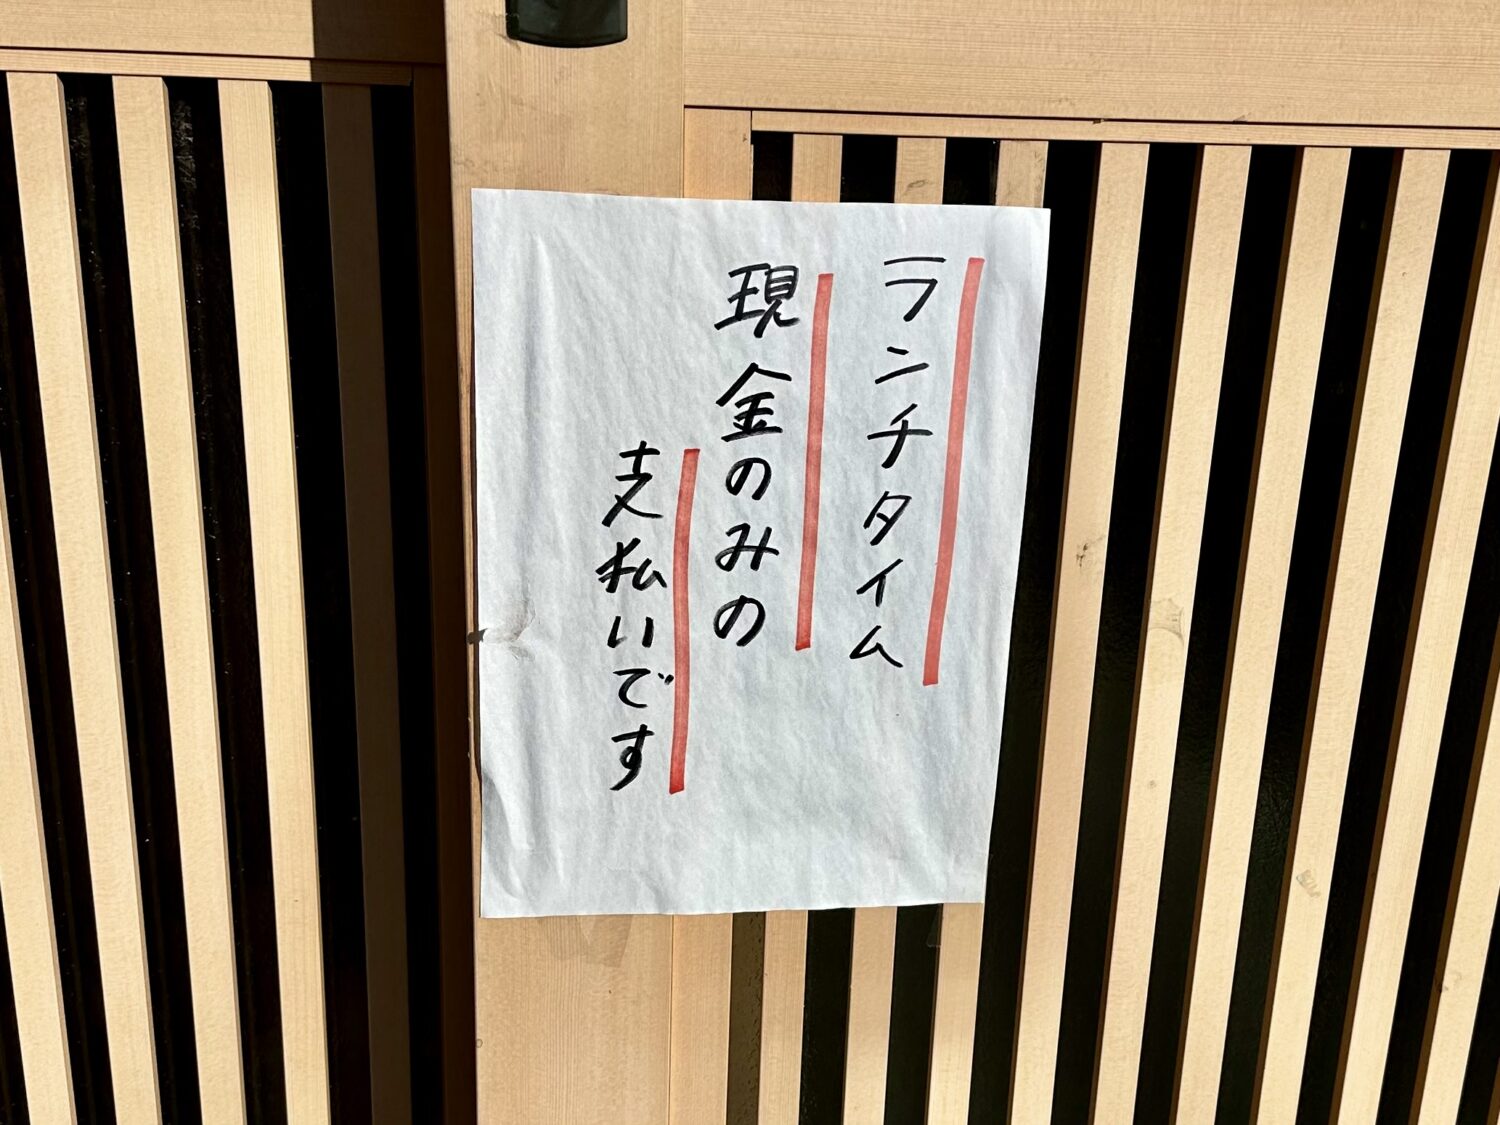 ランチタイム
現金のみの
支払いです